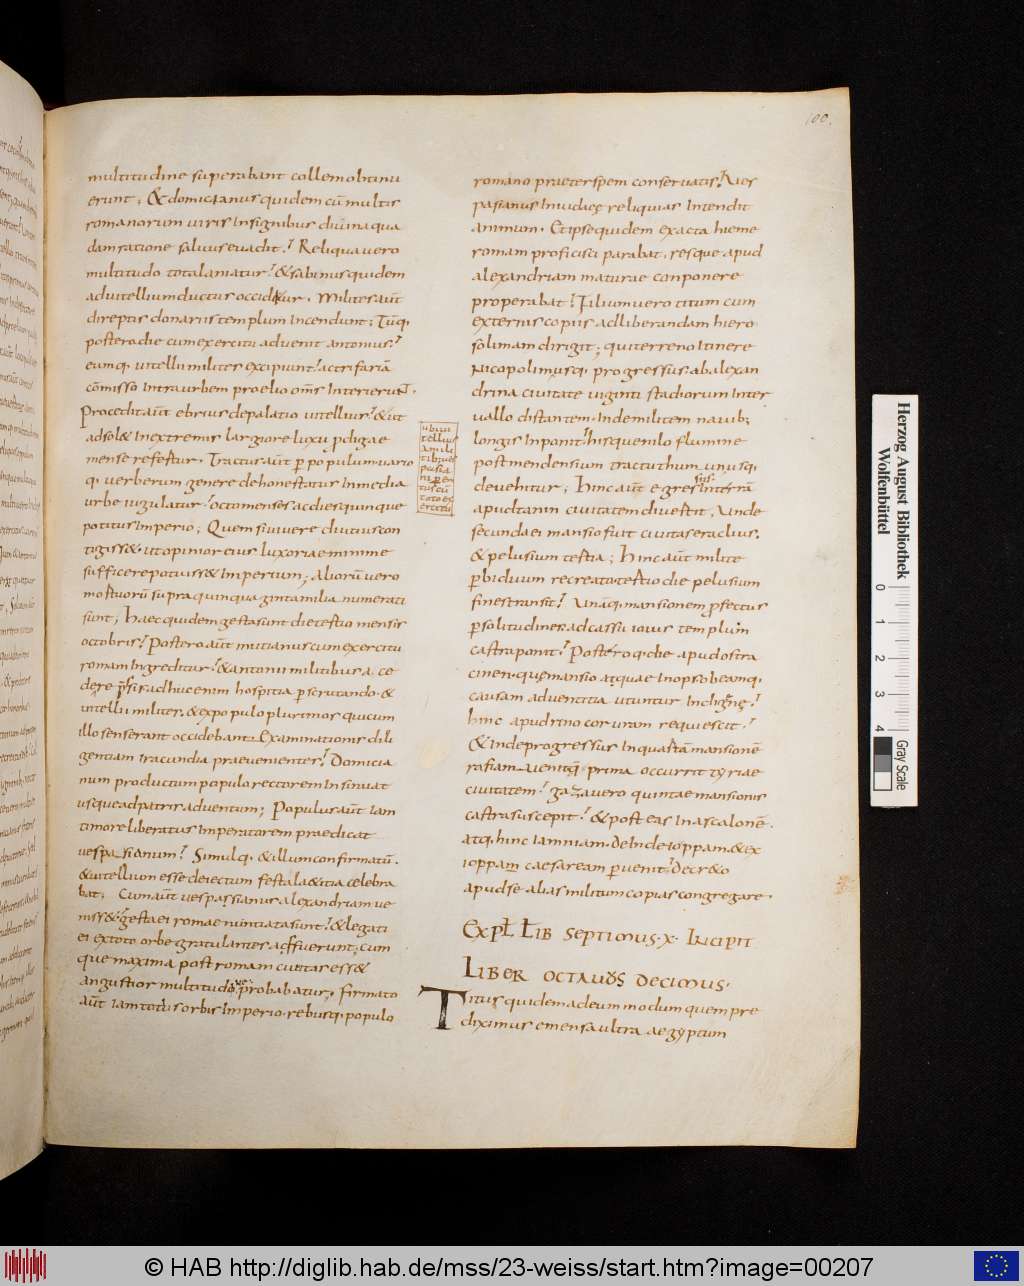 100.
multitudine superabant collem obtinu
erunt; & domicianus quidem cū multis
romanorum viris insignibus divina qua
dam ratione salvus evadit. Reliqua vero
multitudo tota laniatur. & sabinus quidem
ad vitellium ductus occiditur. Milites aūt
direptis donariis templum incendunt; Tūq.
postero die cum exercitu advenit antonius.
eumq. vitellii milites excipiunt. ac trifariā
cōmisso intra urbem proelio oms̄ interierunt.
Procedit aūt ebrius de palatio vitellius. & ut
ad sol& in extremis largiore luxu pdigae
mense refertur. Tractus aūt p populum vario
q. verberum genere dehonestatur in media
urbe iugulatur. octo menses ac dies quinque
potitus imperio; Quem si vivere diutius con
tigiss& ut opinor eius luxoriae minime
sufficere potuiss& imperium; aliorū vero
mortuorū supra quinquaginta milia numerati
sunt; Haec quidem gesta sunt die tertio mensis
octobris. Postero aūt mutianus cum exercitu
romam ingreditur. & antonii militibus a ce
dere adhuc enim hospitia pscrutando &
vitellii milites. & ex populo plurimos qui cum
illo senserant occidebant. Examinationis dili
gentiam iracundia praevenientes. Domicia
num productum populo rectorem insinuat
usque ad patris adventum; Populus aūt iam
timore liberatus imperatorem praedicat
vespasianum. Simulq. & illum confirmatū.
& vitellium esse deiectum festa laetitia celebra
bat. Cum aūt vespassianus alexandriam ve
niss& gesta ei romae nuntiata sunt. & legati
ei ex toto orbe gratulantes adfuerunt; cum
que maxima post romam civitas ess&
angustior multitudo probabatur. Firmato
aūt iam totius orbis imperio. rebusq. populo
ubi vi
tellius
a mili
tib; ves
pasia
ni per
tus cū
toto ex
ercitu
romano praeter spem conservatis. Ves
pasianus in iudaeę reliquias intendit
animum. Et ipse quidem exacta hieme
romam proficisci parabat. res que apud
alexandriam maturae conponere
properabat. Filium vero titum cum
externis copiis ad liberandam hiero
solimam dirigit; qui terreno itinere
nicopolim usq. progressus. ab alexan
drina civitate viginti stadiorum inter
vallo distantem. inde militem navib;
longis inponit. hisque nilo flumine
post mendensium tractut hum unusq.
devehitur; Hinc aūt egressus in terrā
apud tanin civitatem divertit. Unde
secunda ei mansio fuit civitas eraclius.
& pelusium tertia; Hinc aūt milite
p biduum recreato tertio die pelusium
fines transit. Unāq. mansionem pfectus
p solitudines ad cassii iovis templum
castra ponit. Postero q. die apud ostra
cinen. que mansio atquae inops. beamq.
causam adventitia utuntur
hinc apud rinocoruram requiescit.
& inde progressus in quartā mansionē
rafiam venitq. prima occurrit tyriae
civitatem. gaza vero quintae mansionis
castra suscepit. & post eas in ascalonē.
atq. hinc iamniam. deinde ioppam. & ex
ioppam caesaream pvenit. decr&o
apud se alias militum copias congregare.
EXPŁ ŁIB SEPTIMUS·X· INCIPIT
LIBER OCTAVUS DECIMUS.
Titus quidem ad eum modum quem pre
diximus emensa ultra aegyptum
Herzog August Bibliothek
Wolfenbüttel
0 1 2 3 4
Gray Scale
© HAB http://diglib.hab.de/mss/23-weiss/start.htm?image=00207